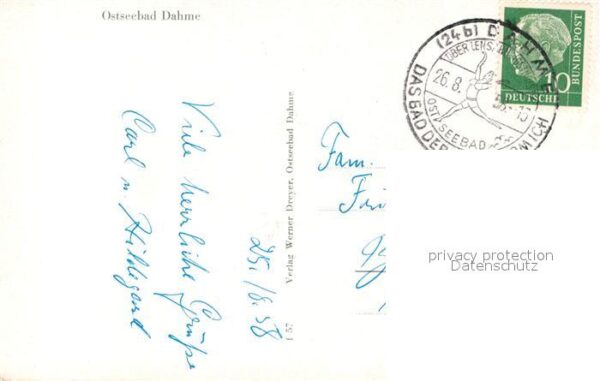 Ostseebad Dahme
Viele herzliche Grüße
Carl u Hildegard
25./8.58
Verlag Werner Dreyer, Ostseebad Dahme
f 57
Fam.
(24b) DAHME
ÜBER LENS
26.8.
OSTSEEBAD
DAS BAD DER
ICH
10
BUNDESPOST
DEUTSCHE
privacy protection
Datenschutz